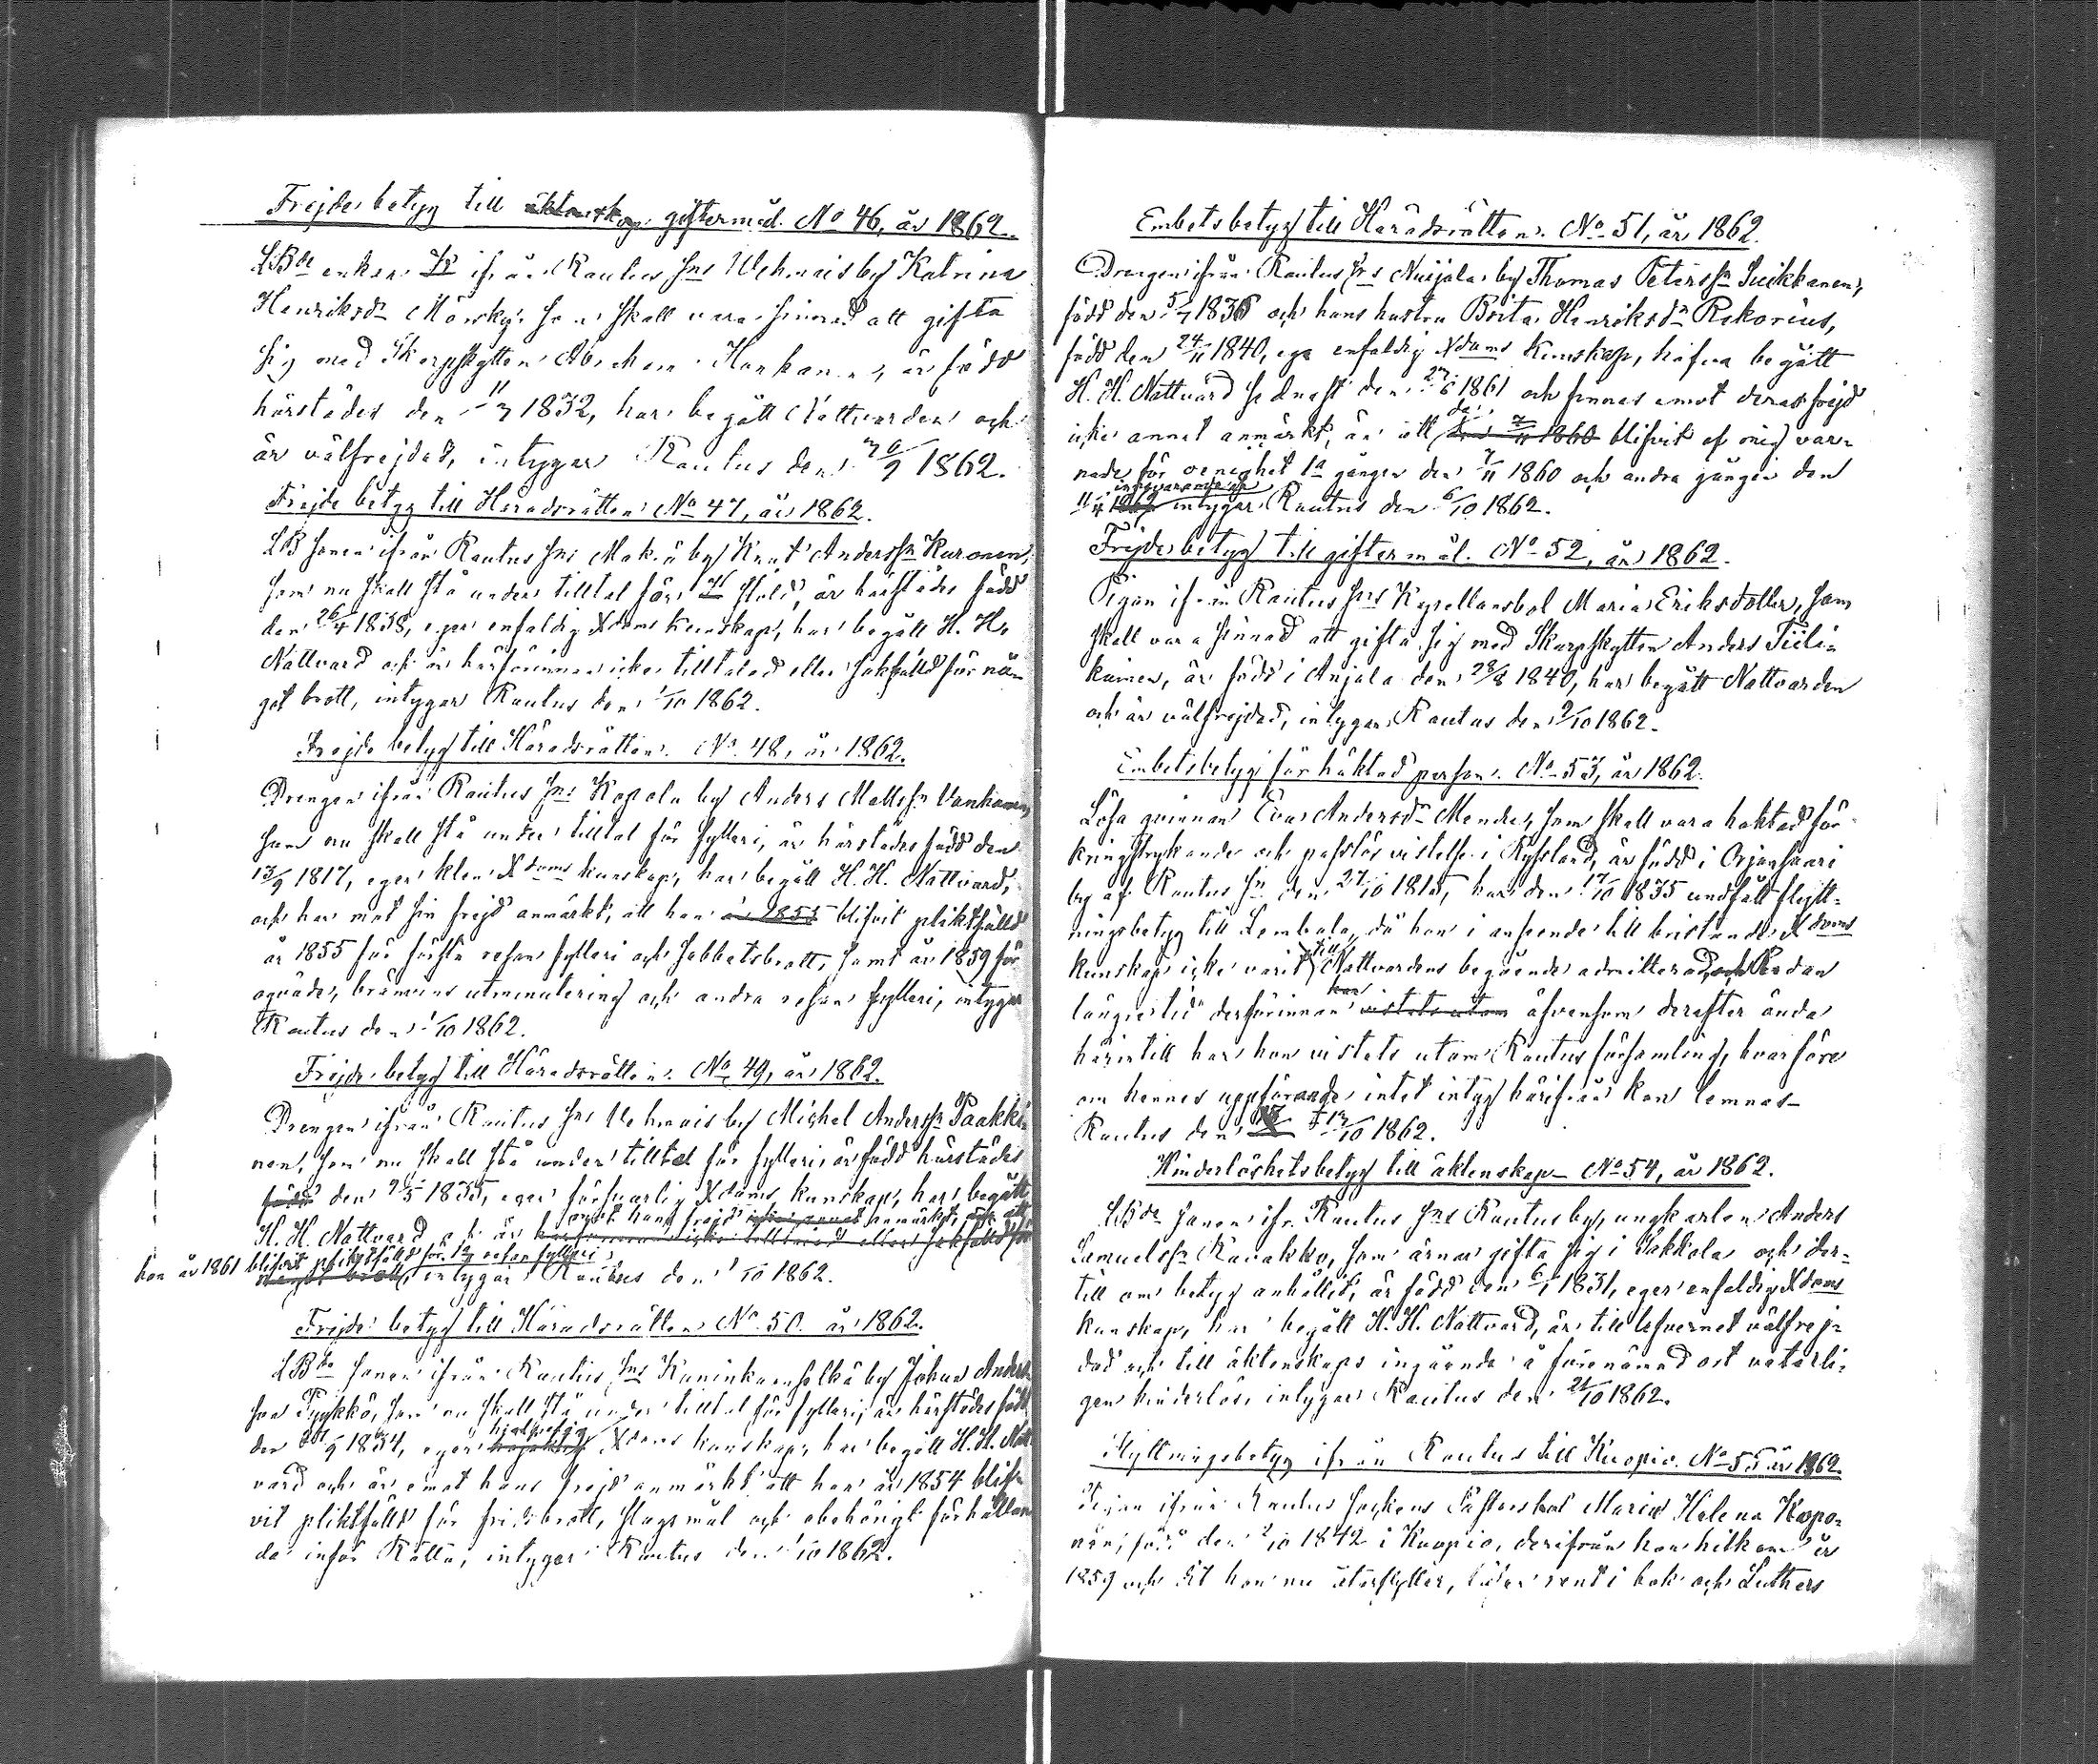 Frejdebetyg till äktenskap giftermål. No 46, år 1862.
LBde enkan ifrån Rautus Sns Wehmais by Katrina
Henriksdr Mörsky, som skall vara sinnad att gifta
sig med Skarpskytten Abraham Honkanen, är född
härstädes den 11/7 1832, har begått Nattvarden och
är välfrejdad, intygar Rautus den 30/9 1862.
Frejdebetyg till Häradsrätten No 47, år 1862.
LB sonen ifrån Rautus Sns Makiä by Knut Anderssn Kuronen,
som nu skall stå under tilltal för stöld, är härstädes född
den 26/4 1838, eger enfaldig Xdoms kunskap, har begått H. H.
Nattvard och är härförinnan icke tilltalad eller sakfälld för nå-
got brott, intygar Rautus den 1/10 1862.
Frejdebetyg till Häradsrätten. No 48, år 1862.
Drengen ifrån Rautus Sns Kopola by Anders Mattssn Vanhanen,
som nu skall stå under tilltal för fylleri, är härstädes född den
13/9 1817, eger klen Xdoms kunskap, har begått H. H. Nattvard,
och har mot sin frejd anmärkt, att han år 1855 blifvit pliktfälld
år 1855 för första resan fylleri och sabbatsbrott, samt år 1859 för
oqväde, bränvins utminutering och andra resan fylleri, intygar
Rautus den 1/10 1862.
Frejdebetyg till Häradsrätten. No 49, år 1862.
Drengen ifrån Rautus Sns Vehmais by Michel Anderssn Paakki-
nen, som nu skall stå under tilltal för fylleri, är född härstädes
född den 9/5 1835, eger försvarlig Xdoms kunskap, har begått
H. H. Nattvard och är emot hans frejd icke annat anmärkt, än att
härförinnan icke tilltalad eller sakfälld för
han år 1861 blifvit pliktfälld för 1a resan fylleri
något brott, intygar Rautus den 1/10 1862.
Frejdebetyg till Häradsrätten No 50. år 1862.
LBde sonen ifrån Rautus Sns Kuninkaanselkä by Johan Anders-
son Pyykkö, som nu skall stå under tilltal för fylleri, är härstädes född
den 1834, eger hjelplig Xdoms kunskap, har begått H. H. Natt-
vard och är emot hans frejd anmärkt att han år 1854 blif-
vit pliktfälld för fridsbrott, slagsmål och obehörigt förhållan-
de inför Rätta, intygar Rautus den 1/10 1862.
Embetsbetyg till Häradsrätten. No 51, år 1862.
Drengen ifrån Rautus Sns Nuijala by Thomas Peterssn Suikkanen,
född den 5/7 1836 och hans hustru Brita Henriksdr Rekorius,
född den 24/11 1840, ega enfaldig Xdoms kunskap, hafva begått
H. H. Nattvard sednast den 27/6 1861 och finnas emot deras frejd
icke annat anmärkt, än att de den 7/11 1860 blifvit af mig var-
nade för oenighet 1a gången den 7/11 1860 och andra gången den
11/4 1862 intygar Rautus den 6/10 1862.
Frejdebetyg till giftermål. No 52, år 1862.
Pigan ifrån Rautus Sns Kapellansbol Maria Eriksdotter, som
skall vara sinnad att gifta sig med Skarpskytten Anders Tiili-
kainen, är född i Anjala den 28/8 1840, har begått Nattvarden
och är välfrejdad, intygar Rautus den 9/10 1862.
Embetsbetyg för häktad person. No 53, år 1862.
Lösa qvinnan Eva Andersdr Mendes, som skall vara häktad för
kringstrykande och passlös vistelse i Ryssland, är född i Orjansaari
by af Rautus Sn den 27/10 1815, har den 17/10 1835 undfått flytt-
ningsbetyg till Lembala, då hon i anseende till bristande Xdoms
kunskap icke varit till Nattvardens begående admitterad, och redan
långsie tid derförinnan har vistats utom äfvensom derefter ända
härintill har hon vistats utom Rautus församling, hvarföre
om hennes uppförande intet intyg härifrån kan lemnas.
Rautus den 13/10 1862.
Hinderlöshetsbetyg till äktenskap. No 54, år 1862.
LBde sonen ifr. Rautus Sns Rautus by, ungkarlen Anders
Samuelssn Kauakko, som ärnar gifta sig i Sakkola och der-
till om betyg anhållit, är född den 6/1 1831, eger enfaldig Xdoms
kunskap, har begått H. H. Nattvard, är till lefvernet välfrej-
dad och till äktenskaps ingående å förenämnd ort veterli-
gen hinderlös, intygar Rautus den 21/10 1862.
Flyttningsbetyg ifrån Rautus till Kuopio. No 55 år 1862.
Pigan ifrån Rautus Sockens Pastorsbol Maria Helena Kopo-
nen, född den 2/10 1842 i Kuopio, derifrån hon hitkom år
1859 och dit hon nu återflyttar, läser rent i bok och Luthers